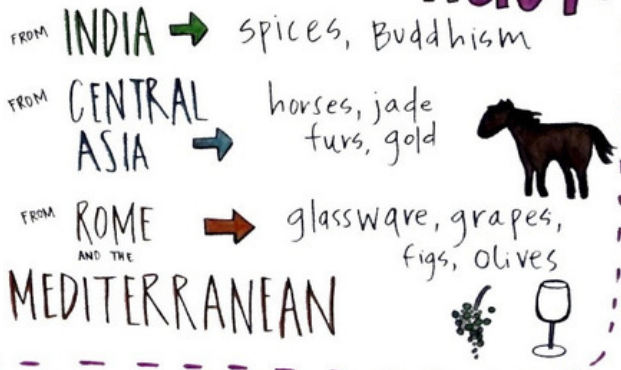 FROM INDIA → spices, Buddhism
FROM CENTRAL ASIA → horses, jade
furs, gold
FROM ROME AND THE MEDITERRANEAN → glassware, grapes,
figs, olives